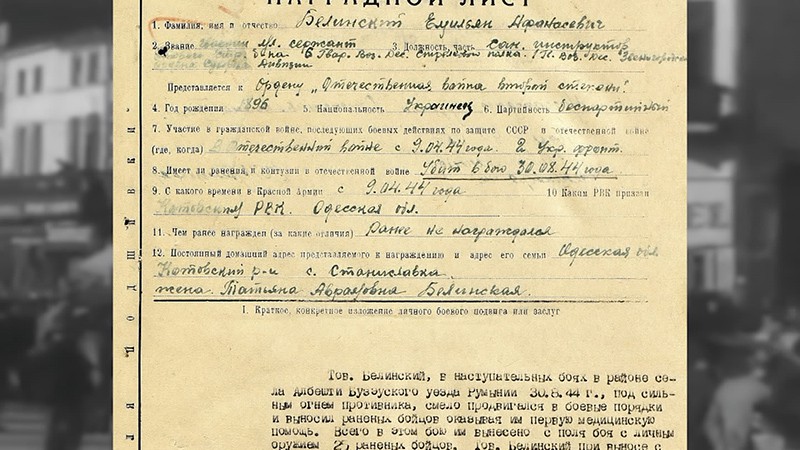 НАГРАДНОЙ ЛИСТ
1. Фамилия, имя и отчество Белинский Емильян Афанасевич
2. Звание мл. сержант 3. Должность, часть Сан. инструктор
6 Гвар. Воз. Дес. Стрелков. полка. 1 Гв. Воз. Дес. Звенигородской
дивизии
Представляется к Ордену „Отечественная война второй степени".
4. Год рождения 1896 5. Национальность Украинец 6. Партийность беспартийный
7. Участие в гражданской войне, последующих боевых действиях по защите СССР и отечественной войне
(где, когда) В Отечественной войне с 9.04.44 года. 2 Укр. фронт.
8. Имеет ли ранения и контузии в отечественной войне Убит в бою 30.08.44 года
9. С какого времени в Красной Армии с 9.04.44 года 10 Каким РВК призван
Котовским РВК. Одесская обл.
11. Чем ранее награжден (за какие отличия) Ранее не награждался
12. Постоянный домашний адрес представляемого к награждению и адрес его семьи Одесская обл.
Котовский р-н с. Станиславка.
жена. Татьяна Авраамовна Белинская.
I. Краткое, конкретное изложение личного боевого подвига или заслуг
Тов. Белинский, в наступательных боях в районе се-
ла Албешти Бузэуского уезда Румынии 30.8.44 г., под силь-
ным огнем противника, смело продвигался в боевые порядки
и выносил раненых бойцов оказывая им первую медицинскую
помощь. Всего в этом бою им вынесено с поля боя с личным
оружием 25 раненых бойцов. Тов. Белинский при выносе с